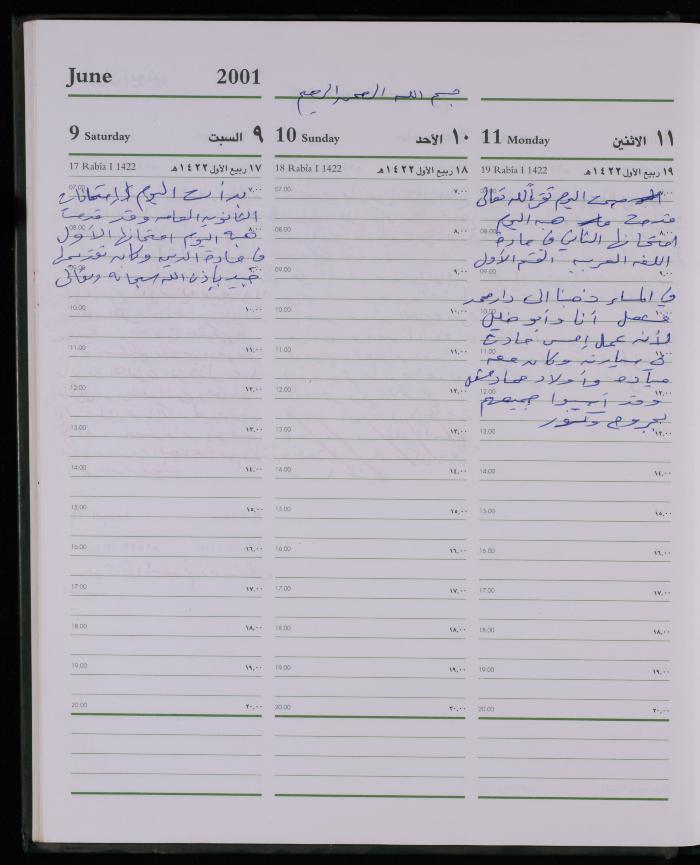 June 2001
بسم الله الرحمن الرحيم
9 Saturday السبت ٩
17 Rabîa I 1422 ١٧ ربيع الأول ١٤٢٢هـ
بدأت اليوم امتحانات
الثانوية العامة وقد قدمت
هبه اليوم امتحانها الأول
في مادة الدين وكان تقديمها
جيد بإذن الله سبحانه وتعالى
07.00 ٧,٠٠
08.00 ٨,٠٠
09.00 ٩,٠٠
10.00 ١٠,٠٠
11.00 ١١,٠٠
12.00 ١٢,٠٠
13.00 ١٣,٠٠
14.00 ١٤,٠٠
15.00 ١٥,٠٠
16.00 ١٦,٠٠
17.00 ١٧,٠٠
18.00 ١٨,٠٠
19.00 ١٩,٠٠
20.00 ٢٠,٠٠
10 Sunday الأحد ١٠
18 Rabîa I 1422 ١٨ ربيع الأول ١٤٢٢هـ
07.00 ٧,٠٠
08.00 ٨,٠٠
09.00 ٩,٠٠
10.00 ١٠,٠٠
11.00 ١١,٠٠
12.00 ١٢,٠٠
13.00 ١٣,٠٠
14.00 ١٤,٠٠
15.00 ١٥,٠٠
16.00 ١٦,٠٠
17.00 ١٧,٠٠
18.00 ١٨,٠٠
19.00 ١٩,٠٠
20.00 ٢٠,٠٠
11 Monday الاثنين ١١
19 Rabîa I 1422 ١٩ ربيع الأول ١٤٢٢هـ
اليوم الله تعالى
هبه اليوم
امتحانها الثاني في مادة
اللغه العربيه القسم الأول
في المساء ذهبنا الى دار محمد
أنا وأبو خليل
لأنه عمل امس حادث
في سيارته وكان معه
وأولاد
وقد أصيبوا جميعهم
بجروح وكسور
07.00 ٧,٠٠
08.00 ٨,٠٠
09.00 ٩,٠٠
10.00 ١٠,٠٠
11.00 ١١,٠٠
12.00 ١٢,٠٠
13.00 ١٣,٠٠
14.00 ١٤,٠٠
15.00 ١٥,٠٠
16.00 ١٦,٠٠
17.00 ١٧,٠٠
18.00 ١٨,٠٠
19.00 ١٩,٠٠
20.00 ٢٠,٠٠